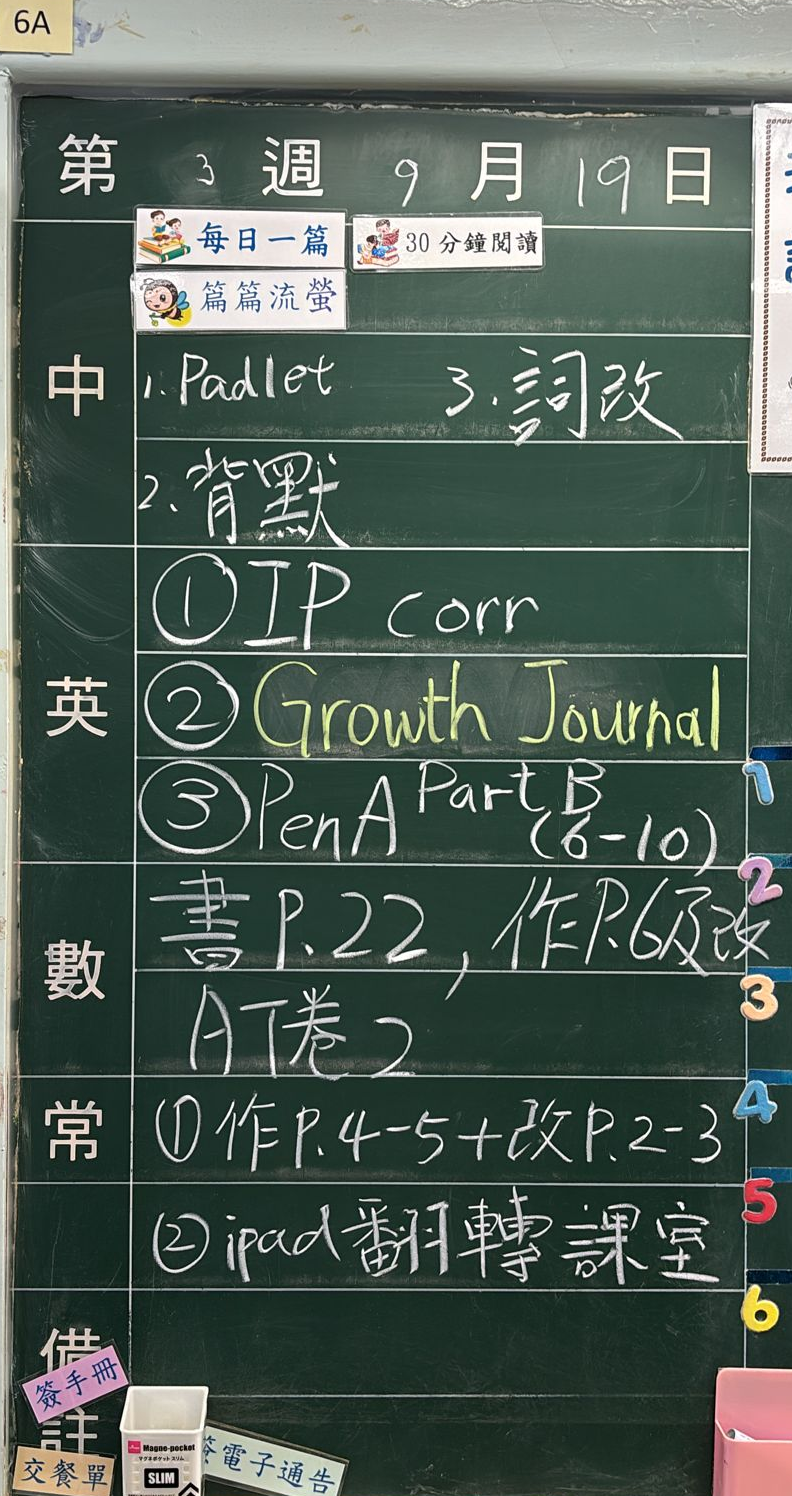 6A
第 3 週 9 月 19 日
每日一篇 30分鐘閱讀
篇篇流螢
中
1. Padlet 3. 詞改
2. 背默
英
① IP corr
② Growth Journal
③ Pen A Part B (6-10)
數
書 P.22, 作P.6及改
AT卷2
常
① 作 P.4-5 + 改 P.2-3
② ipad 翻轉課室
備註
簽手冊
交餐單
Magne-pocket
マグネポケットスリム
SLIM
簽電子通告
1
2
3
4
5
6